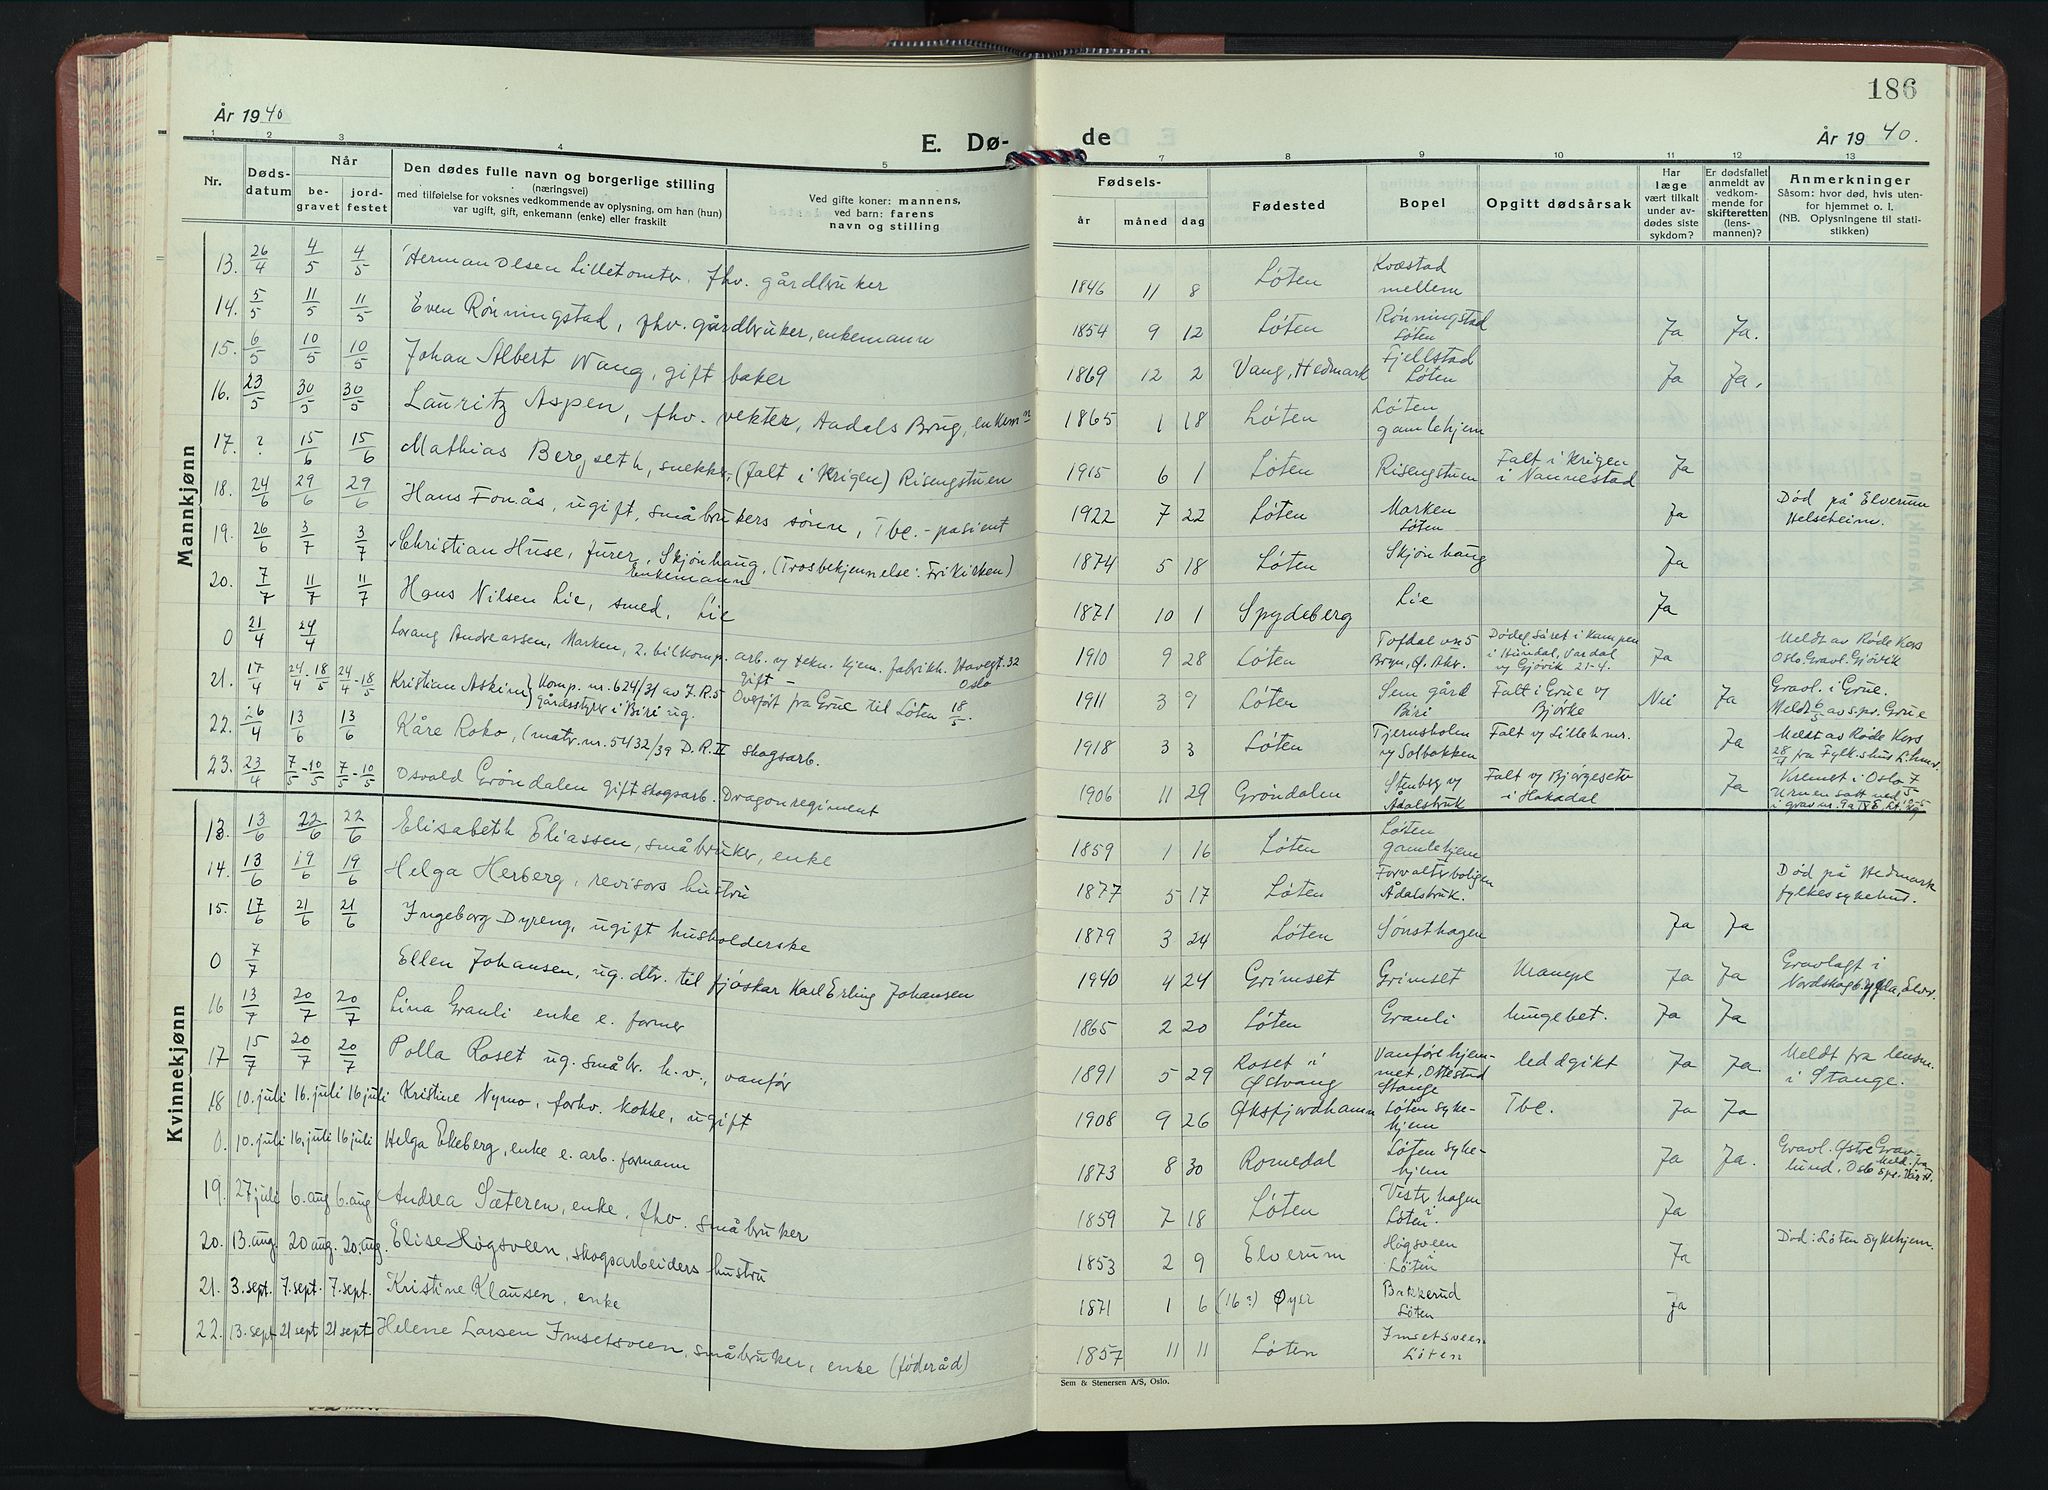 186
År 1940
E. Dø-
de
År 1940.
1 2 3 4 5 7 8 9 10 11 12 13
Nr.
Døds-
datum
Når
be-
gravet
jord-
festet
Den dødes fulle navn og borgerlige stilling
(næringsvei)
med tilføielse for voksnes vedkommende av oplysning, om han (hun)
var ugift, gift, enkemann (enke) eller fraskilt
Ved gifte koner: mannens,
ved barn: farens
navn og stilling
Fødsels-
år måned dag
Fødested
Bopel
Opgitt dødsårsak
Har
læge
vært tilkalt
under av-
dødes siste
sykdom?
Er dødsfallet
anmeldt av
vedkom-
mende for
skifteretten
(lens-
mannen)?
Anmerkninger
Såsom: hvor død, hvis uten-
for hjemmet o. l.
(NB. Oplysningene til stati-
stikken)
Mannkjønn
13. 26/4 4/5 4/5 Herman Olsen Lilletomter, fhv. gårdbruker 1846 11 8 Løten Kvæstad
mellem
14. 5/5 11/5 11/5 Even Rønningstad, fhv. gårdbruker, enkemann 1854 9 12 Løten Rønningstad
Løten Ja Ja.
15. 6/5 10/5 10/5 Johan Albert Wang, gift baker 1869 12 2 Vang, Hedmark Fjellstad
Løten Ja Ja.
16. 23/5 30/5 30/5 Lauritz Aspen, fhv. vekter, Aadals Brug, enkem<sup>n</sup> 1865 1 18 Løten Løten
gamlehjem
17. ? 15/6 15/6 Mathias Bergseth, snekker, (falt i krigen) Risengstuen 1915 6 1 Løten Risengstuen Falt i krigen
i Nannestad Ja
18. 24/6 29/6 29/6 Hans Fonås, ugift, småbrukers sønn, Tbc.-pasient 1922 7 22 Løten Marken
Løten Ja Død på Elverum
Helseheim.
19. 26/6 3/7 3/7 Christian Huse, furer, Skjønhaug, (Trosbekjennelse: Frikirken)
Enkemann 1874 5 18 Løten Skjønhaug Ja
20. 7/7 11/7 11/7 Hans Nilsen Lie, smed, Lie 1871 10 1 Spydeberg Lie Ja
0 21/4 24/4 Lorang Andreassen, Marken, 2. bilkomp. arb. v tekn. kjem. fabrikk. Havegt. 32
gift - Oslo 1910 9 28 Løten Tofdal vn 5
Bryn, Ø. Aker. Dødelig såret i kampen
i Hundal, Vardal
v Gjøvik 21-4. Ja Meldt av Røde Kors
Oslo. Gravl. Gjøvik
21. 17/4 24/4-18/5 24/4-18/5 Kristian Askim } Komp. nr. 624/31 av I.R.5
gårdsstyrer i Biri ug. Overført fra Grue til Løten 18/5. 1911 3 9 Løten Sem gård
Biri Falt i Grue v
Bjørke Nei Ja Gravl. i Grue.
Meldt 6/5 av s.pr. Grue
22. 26/4 13/6 13/6 Kåre Roko, (matr. nr. 5432/39 D.R. II skogsarb. 1918 3 3 Løten Tjernsholen
v Solbakken Falt v Lillehmr. Ja Meldt av Røde Kors
28/9 fra Fylk.shus L.hmr.
23. 23/4 7/5-10/5 7/5-10/5 Osvald Grøndalen gift skogsarb. Dragonregiment 1906 11 29 Grøndalen Stenberg v
Ådalsbruk Falt v Bjørgeseter
i Hakadal Ja Kremert i Oslo 7/5
Urnen satt ned 10-5
i grav nr. 9a
Kvinnekjønn
13. 13/6 22/6 22/6 Elisabeth Eliassen, småbruker, enke 1859 1 16 Løten Løten
gamlehjem
14. 13/6 19/6 19/6 Helga Herberg, revisors hustru 1877 5 17 Løten Forvalterboligen
Ådalsbruk. Død på Hedmark
fylkessykehus.
15. 17/6 21/6 21/6 Ingeborg Dyreng, ugift husholderske 1879 3 24 Løten Sønsthagen Ja Ja
0 7/7 Ellen Johansen, ug. dtr. til fjøskar Karl Erling Johansen 1940 4 24 Grimset Grimset Krampe Ja Ja Gravlagt i
Nordskogbygda, Elvr.
16 13/7 20/7 20/7 Lina Grauli enke e. former 1865 2 20 Løten Grauli lungebet. Ja Ja
17 15/7 20/7 20/7 Polla Roset ug. småbr. h.v., vanfør 1891 5 29 Roset i
Østvang Vanførehjem-
met, Ottestad
Stange leddgikt Ja Ja. Meldt fra lensm.
i Stange.
18 10. juli 16. juli 16 juli Kristine Nymo, forhv. kokke, ugift 1908 9 26 Øksfjordhamn Løten syke-
hjem Tbc. Ja Ja
0. 10. juli 16. juli 16 juli Helga Ekeberg, enke e. arb. formann 1873 8 30 Romedal Løten syke-
hjem Ja Ja. Gravl. Østre Grav-
lund, Oslo Meld. fra
19. 27 juli 6. aug 6. aug Andrea Sæteren, enke, fhv. småbruker 1859 7 18 Løten Vesterhagen
i Løten. Ja
20. 13. aug. 20 aug. 20. aug. Elise Høgsveen, skogsarbeiders hustru 1853 2 9 Elverum Høgsveen
i Løten Ja Død: Løten Sykehjem.
21. 3. sept. 7. sept. 7. sept. Kristine Klausen, enke 1871 1 6 (16?) Øyer Bakkerud
Løten Ja
22. 13. sept 21 sept 21 sept Helene Larsen Imsetsveen, småbruker, enke (føderåd) 1857 11 11 Løten Imsetsveen
Løten
Sem & Stenersen A/S, Oslo.